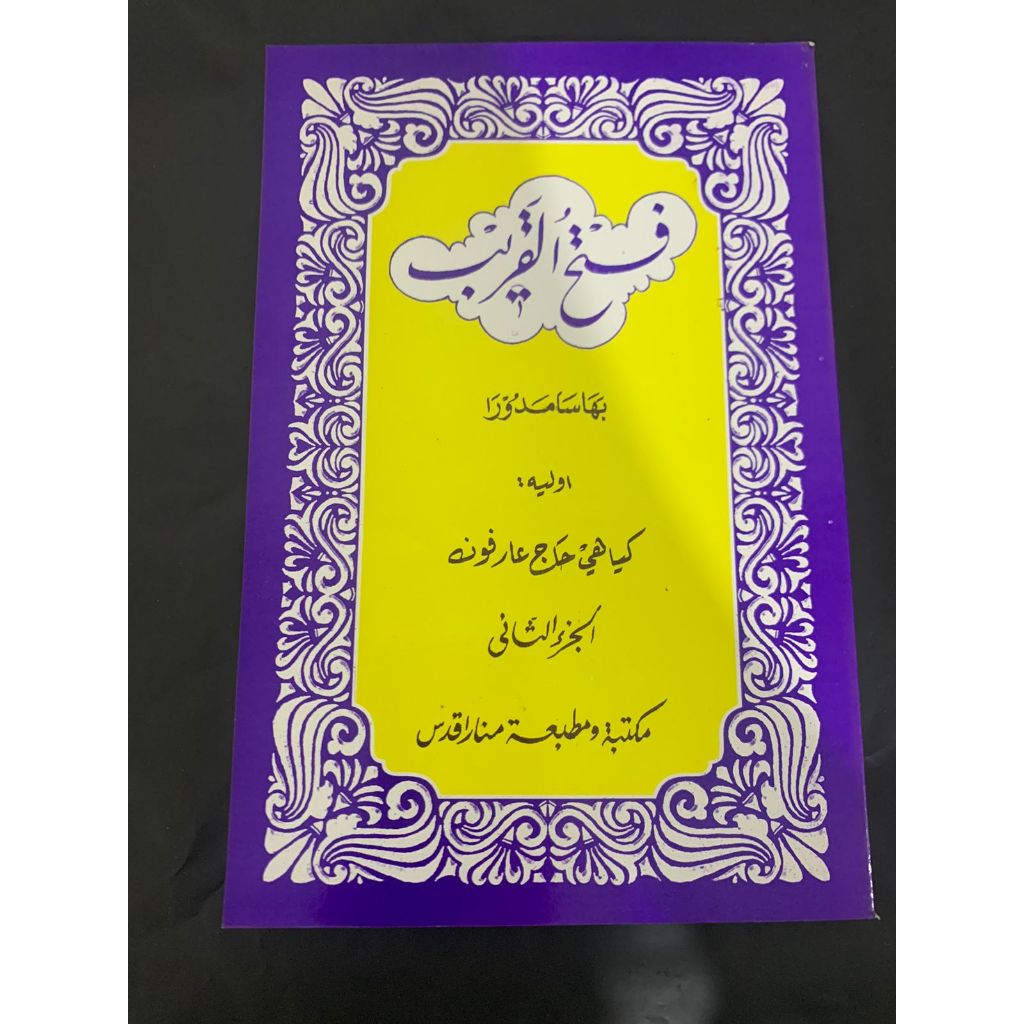 فَتْحُ الْقَرِيْب
بهَاسَا مَدُوْرَا
اوليه :
كياهي حَاج عارفون
الجزء الثانى
مكتبة ومطبعة منارا قدس